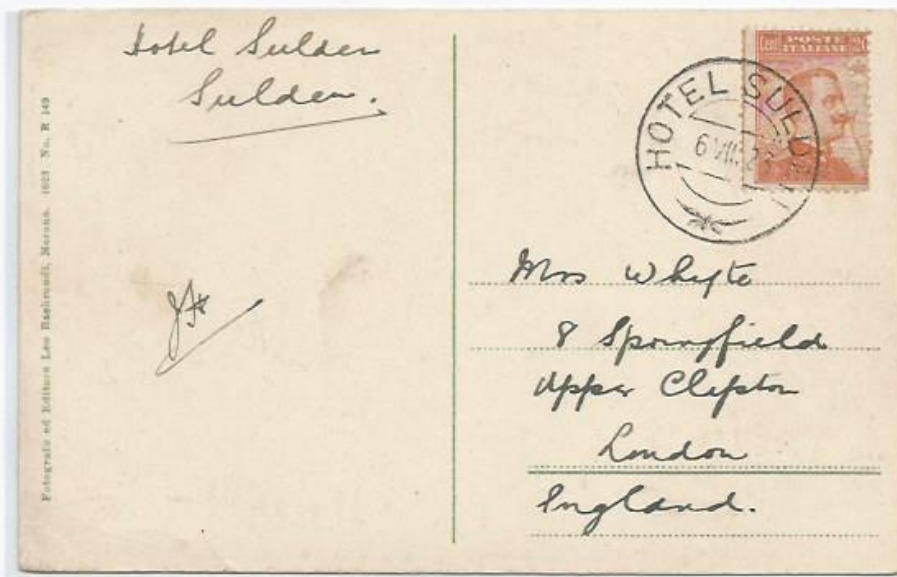 Hotel Sulden
Sulden.
Fotografia ed Editura Leo Baehrendt, Merano. 1923 No. R 149
Cent POSTE 20
ITALIANE
HOTEL SULDEN
6 VIII 2
Mrs Whyte
8 Springfield
Upper Clapton
London
England.